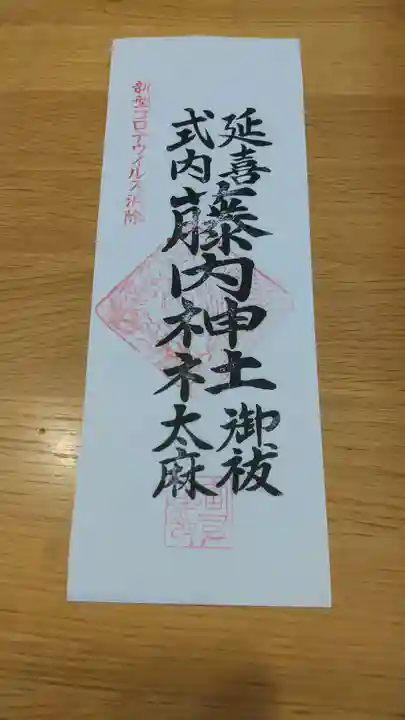 延喜
式内
藤内神社
御祓
太麻
新型コロナウイルス祓除